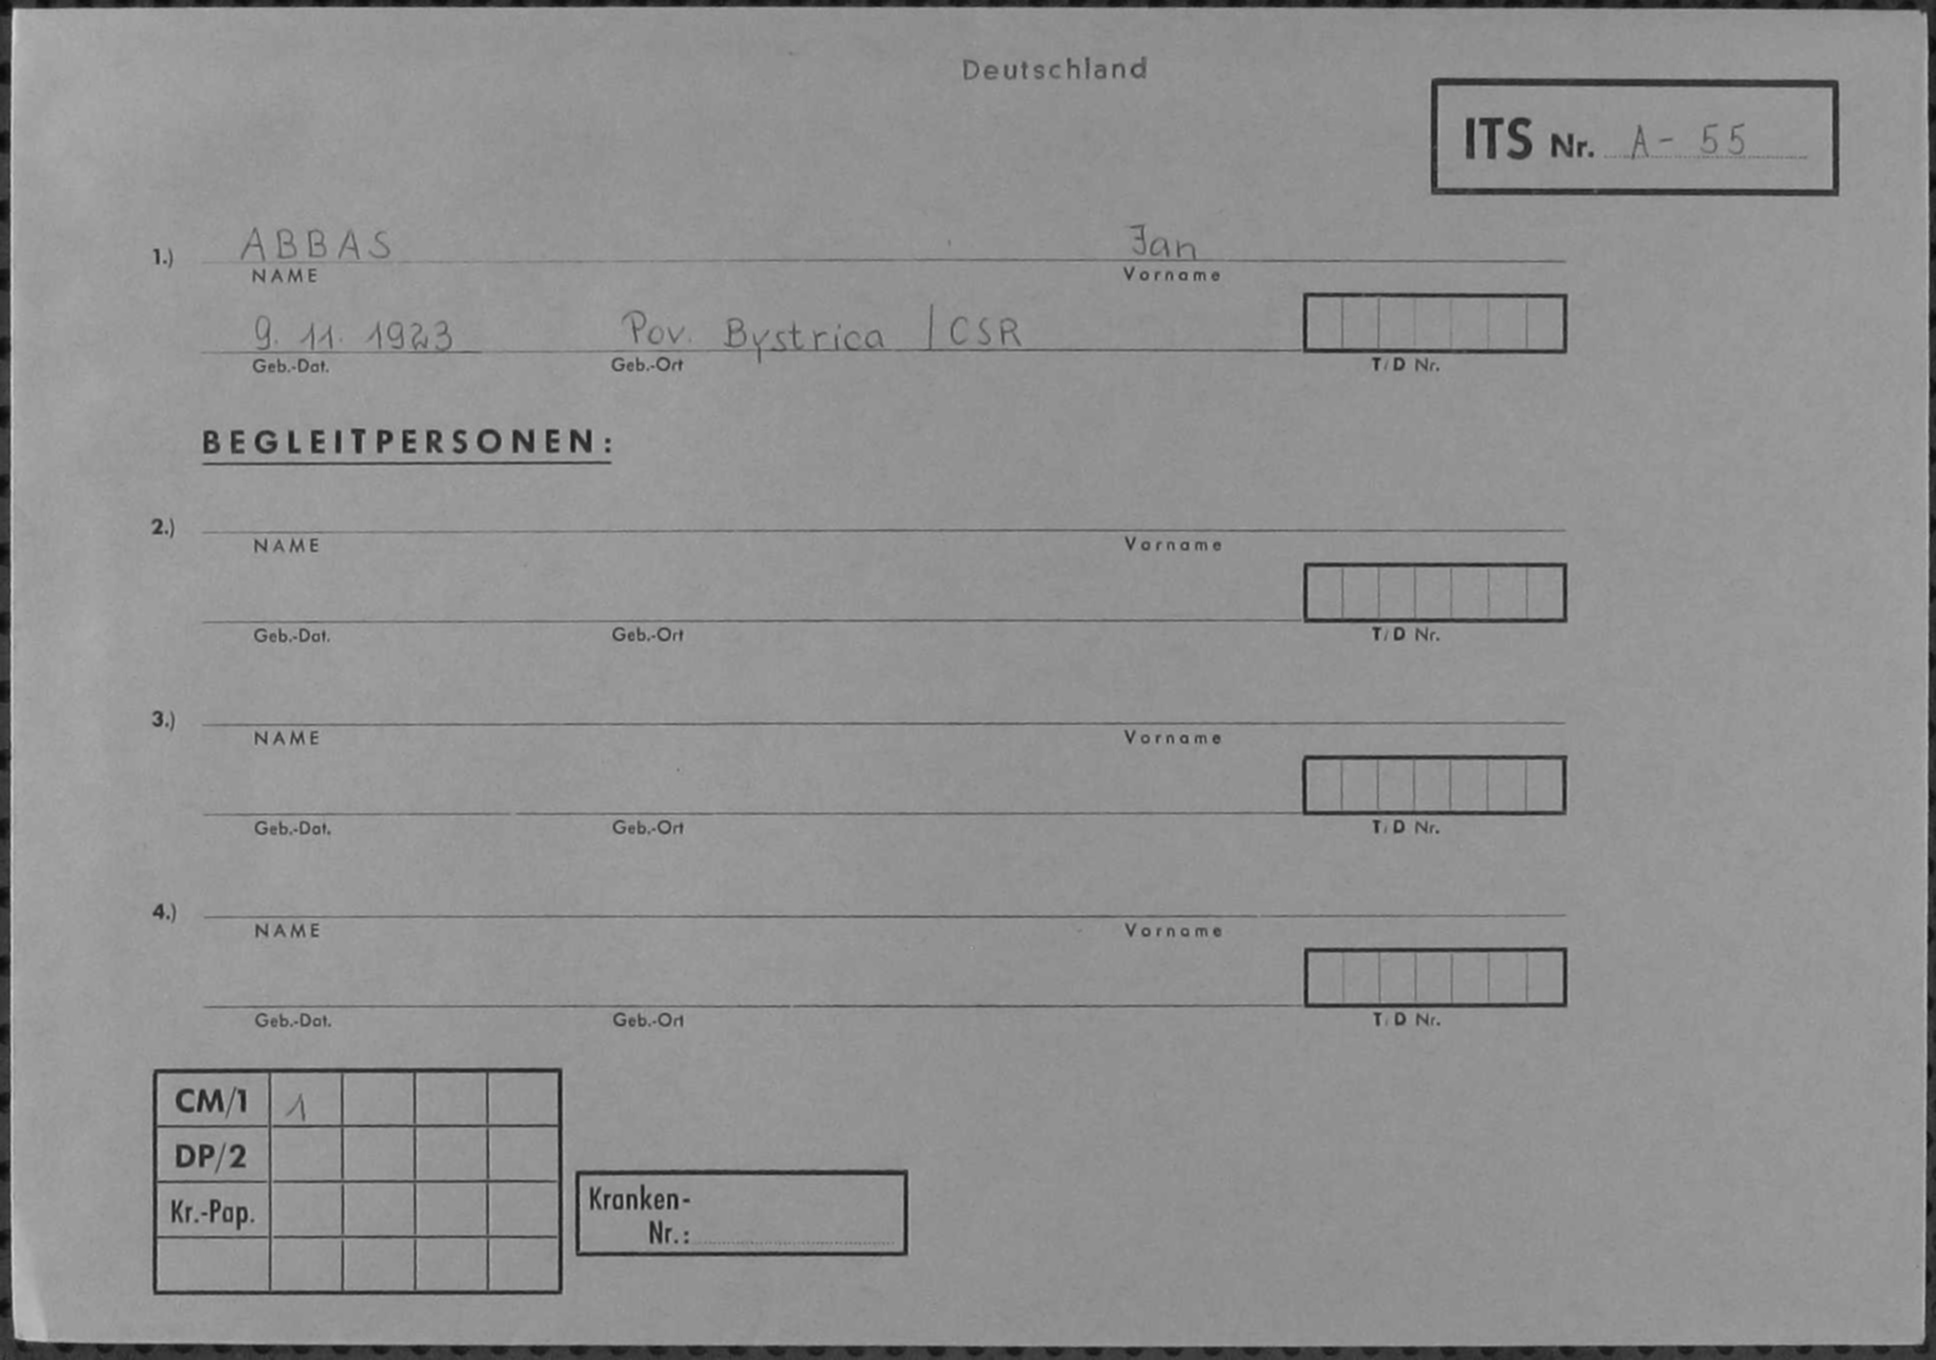 Deutschland
ITS Nr. A- 55
1.) ABBAS Jan
NAME Vorname
9. 11. 1923 Pov. Bystrica / CSR
Geb.-Dat. Geb.-Ort T/D Nr.
BEGLEITPERSONEN:
2.)
NAME Vorname
Geb.-Dat. Geb.-Ort T/D Nr.
3.)
NAME Vorname
Geb.-Dat. Geb.-Ort T/D Nr.
4.)
NAME Vorname
Geb.-Dat. Geb.-Ort T/D Nr.
CM/1 1
DP/2
Kr.-Pap.
Kranken-
Nr.: